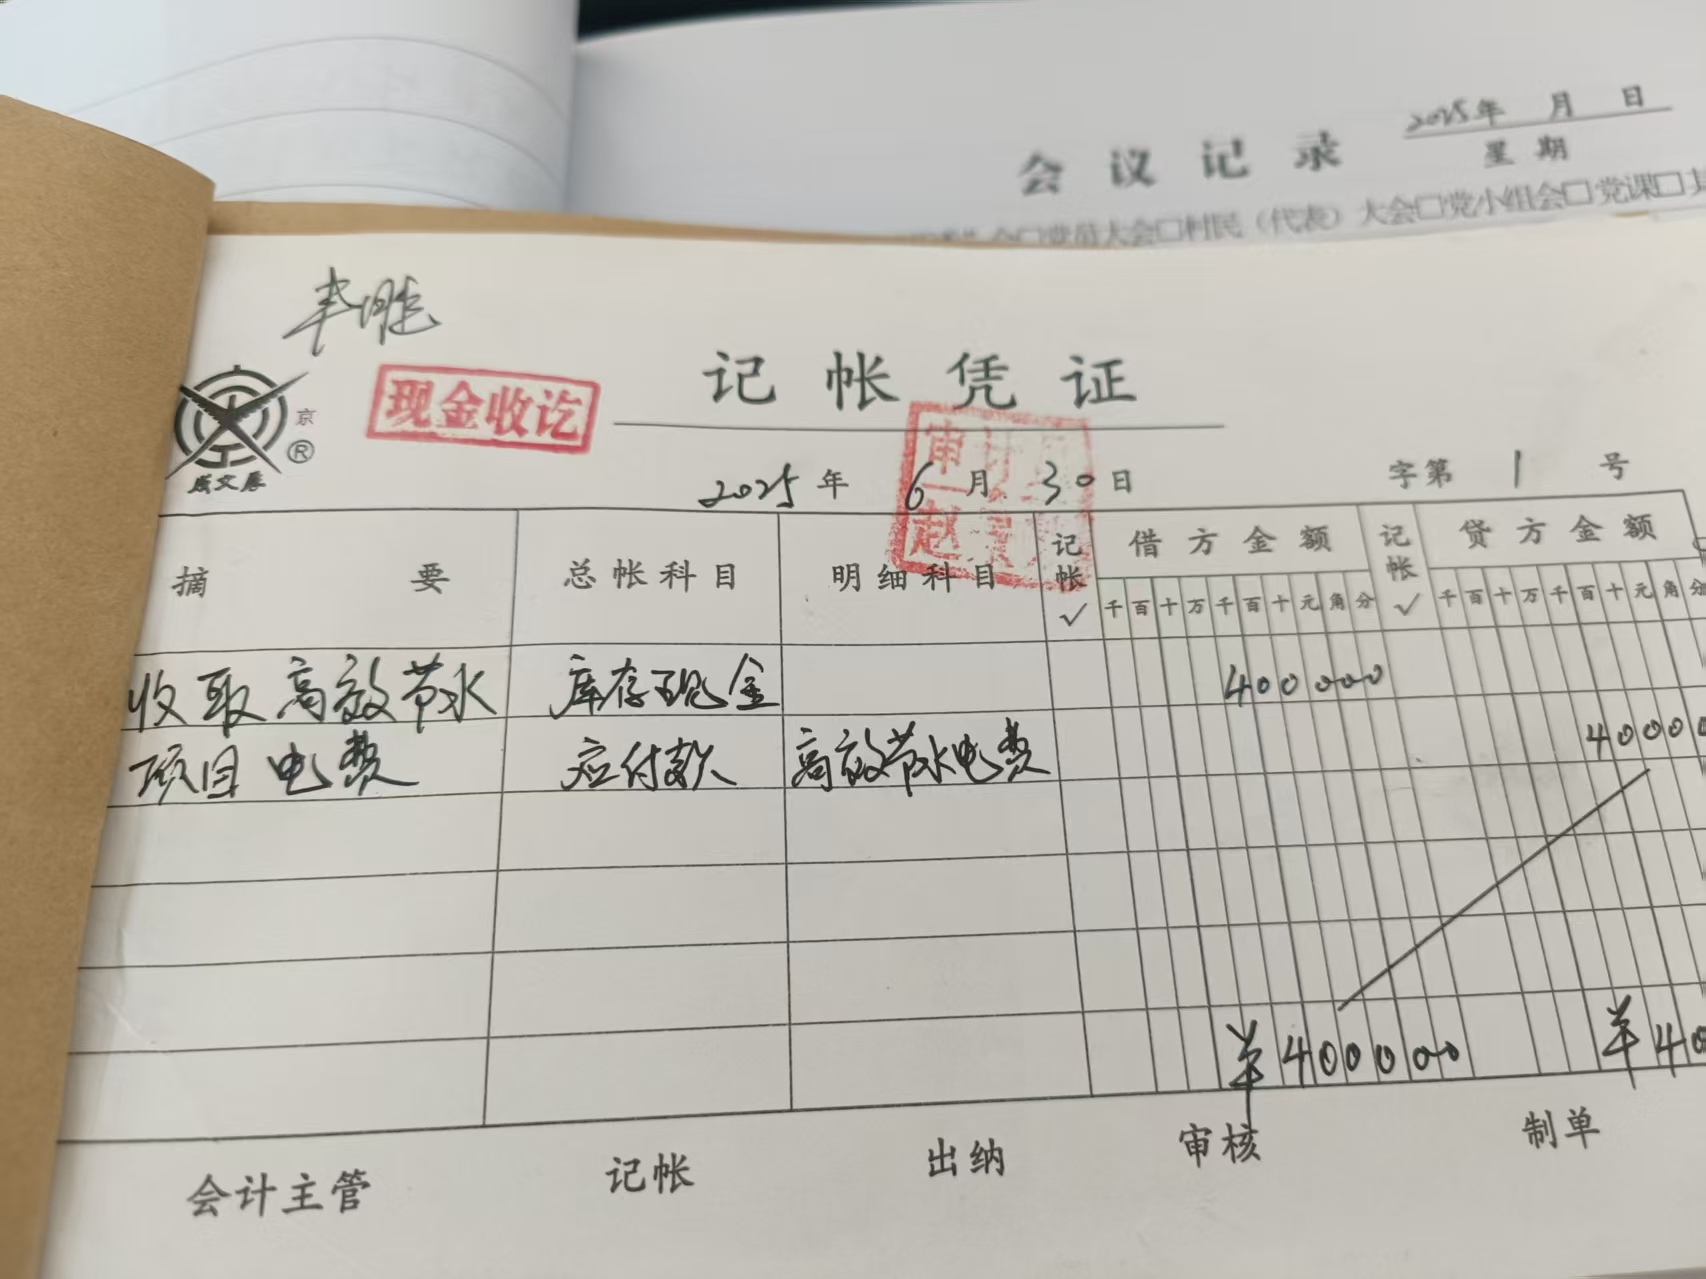 2025年 月 日
会议记录
星期
党员大会□村民（代表）大会□党小组会□党课□
丰胜
记帐凭证
现金收讫
京
®
成文厚
审计
赵
2025年6月30日
字第 1 号
摘要 总帐科目 明细科目 记帐✓ 借方金额 记帐✓ 贷方金额
千百十万千百十元角分 千百十万千百十元角分
收取高效节水 库存现金 400000
项目电费 应付款 高效节水电费 40000
¥400000 ¥40
会计主管 记帐 出纳 审核 制单